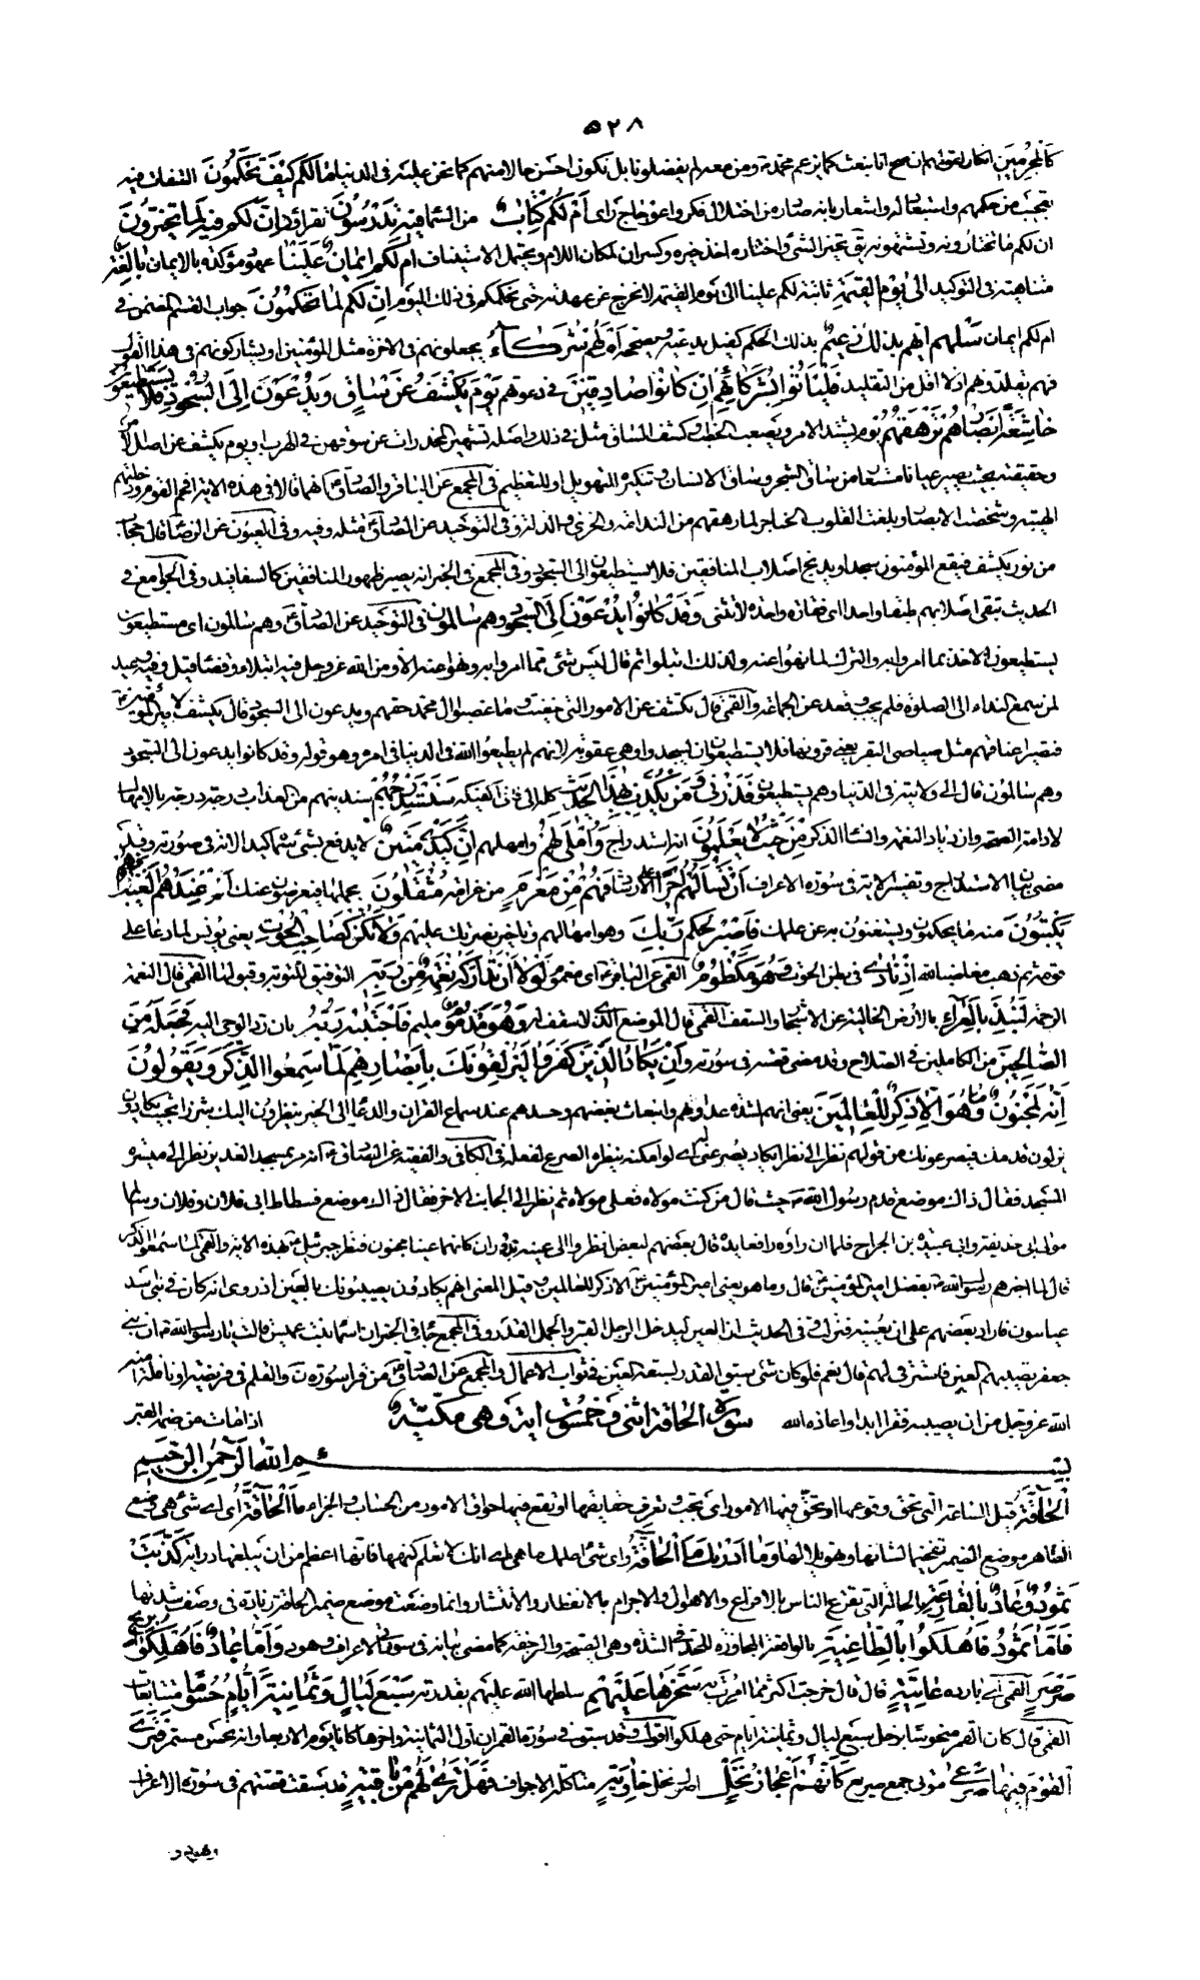 ٥٢٨
كَالْمُجْرِمِينَ انكار لقولهم ان صح انا نبعث كما يزعم محمد ومن معه لم يفضلونا بل نكون احسن حالا منهم كما نحن عليه فى الدنيا مَا لَكُمْ كَيْفَ تَحْكُمُونَ التفات فيه
تعجب من حكمهم واستبعاد له واشعار بانه صادر من اختلال فكر واعوجاج راى أَمْ لَكُمْ كِتَابٌ من السماء فِيهِ تَدْرُسُونَ تقراؤن إِنَّ لَكُمْ فِيهِ لَمَا تَخَيَّرُونَ
ان لكم ما تختارونه وتشتهونه يق تخير الشئ واختاره اخذ خيره وكسر ان لمكان اللام ويحتمل الاستيناف أَمْ لَكُمْ أَيْمَانٌ عَلَيْنَا عهود مؤكدة بالايمان بَالِغَةٌ
متناهية فى التوكيد إِلَى يَوْمِ الْقِيَمَةِ ثابتة لكم علينا الى يوم القيمة لا نخرج عن عهدته حتى نحكمكم فى ذلك اليوم إِنَّ لَكُمْ لَمَا تَحْكُمُونَ جواب القسم المضمن فى
ام لكم ايمان سَلْهُمْ أَيُّهُمْ بِذَلِكَ زَعِيمٌ بذلك الحكم كفيل يدعيه ويصححه أَمْ لَهُمْ شُرَكَاءُ يجعلونهم فى الاخرة مثل المؤمنين او يشاركونهم فى هذا القول
فهم يقلدونهم اذ لا اقل من التقليد فَلْيَأْتُوا بِشُرَكَائِهِمْ إِنْ كَانُوا صَادِقِينَ فى دعوتهم يَوْمَ يُكْشَفُ عَنْ سَاقٍ وَيُدْعَوْنَ إِلَى السُّجُودِ فَلَا يَسْتَطِيعُونَ
خَاشِعَةً أَبْصَارُهُمْ تَرْهَقُهُمْ يوم يشتد الامر ويصعب الخطب وكشف الساق مثل فى ذلك واصله تشمير المخدرات عن سوقهن فى الهرب او يوم يكشف عن اصل الامر
وحقيقته بحيث يصير عيانا مستعار من ساق الشجر وساق الانسان وتنكيره للتهويل او للتعظيم فى المجمع عن الباقر والصادق انهما قالا فى هذه الاية افحم القوم ودخلتهم
الهيبة وشخصت الابصار وبلغت القلوب الحناجر لما رهقهم من الندامة والخزى والذلة وفى التوحيد عن الصادق مثله وفيه وفى العيون عن الرضا قال حجاب
من نور يكشف فيقع المؤمنون سجدا ويدبح اصلاب المنافقين فلا يستطيعون الى السجود وفى المجمع فى الخبر انه يصير ظهور المنافقين كالسفافيد وفى الجوامع فى
الحديث تبقى اصلابهم طبقا واحدا اى فقارة واحدة لا تنثنى وَقَدْ كَانُوا يُدْعَوْنَ إِلَى السُّجُودِ وَهُمْ سَالِمُونَ فى التوحيد عن الصادق وهم سالمون اى مستطيعون
يستطيعون الاخذ بما امروا به والترك لما نهوا عنه ولذلك ابتلوا ثم قال ليس شئ مما امروا به ونهوا عنه الا ومن الله عز وجل فيه ابتلاء وقضاء قيل وفيه وعيد
لمن يسمع النداء الى الصلوة فلم يجب وقعد عن الجماعة والقمى قال يكشف عن الامور التى خفيت وما غصبوا ال محمد حقهم ويدعون الى السجود قال يكشف لامير المؤمنين
فتصير اعناقهم مثل صياصى البقر يعنى قرونها فلا يستطيعون ان يسجدوا وهى عقوبة لانهم لم يطيعوا الله فى الدنيا فى امره وهو قوله وقد كانوا يدعون الى السجود
وهم سالمون قال الى ولايته فى الدنيا وهم يستطيعون فَذَرْنِي وَمَنْ يُكَذِّبُ بِهَذَا الْحَدِيثِ كله الى فانى اكفيكه سَنَسْتَدْرِجُهُمْ سندنيهم من العذاب درجة درجة بالامهال
لادامة الصحة وازدياد النعمة وانساء الذكر مِنْ حَيْثُ لَا يَعْلَمُونَ انه استدراج وَأُمْلِي لَهُمْ وامهلهم إِنَّ كَيْدِي مَتِينٌ لا يدفع بشئ سماه كيدا لانه فى صورته وقد
مضى بيان الاستدراج وتفسير الاية فى سورة الاعراف أَمْ تَسْأَلُهُمْ أَجْرًا على الارشاد فَهُمْ مِنْ مَغْرَمٍ من غرامة مُثْقَلُونَ بحملها فيعرضون عنك أَمْ عِنْدَهُمُ الْغَيْبُ فَهُمْ
يَكْتُبُونَ منه ما يحكمون ويستغنون به عن علمك فَاصْبِرْ لِحُكْمِ رَبِّكَ وهو امهالهم وتاخير نصرتك عليهم وَلَا تَكُنْ كَصَاحِبِ الْحُوتِ يعنى يونس لما دعا على
قومه ثم ذهب مغاضبا لله إِذْ نَادَى فى بطن الحوت وَهُوَ مَكْظُومٌ القمى عن الباقر اى مغموم لَوْلَا أَنْ تَدَارَكَهُ نِعْمَةٌ مِنْ رَبِّهِ التوفيق للتوبة وقبولها القمى قال النعمة
الرحمة لَنُبِذَ بِالْعَرَاءِ بالارض الخالية عن الاشجار والسقف القمى قال الموضع الذى لا سقف له وَهُوَ مَذْمُومٌ مليم فَاجْتَبَاهُ رَبُّهُ بان رد الوحى اليه فَجَعَلَهُ مِنَ
الصَّالِحِينَ من الكاملين فى الصلاح وقد مضى قصته فى سورته وَإِنْ يَكَادُ الَّذِينَ كَفَرُوا لَيُزْلِقُونَكَ بِأَبْصَارِهِمْ لَمَّا سَمِعُوا الذِّكْرَ وَيَقُولُونَ
إِنَّهُ لَمَجْنُونٌ وَمَا هُوَ إِلَّا ذِكْرٌ لِلْعَالَمِينَ يعنى انهم لشدة عداوتهم وانبعاث بغضهم وحسدهم عند سماع القران والدعاء الى الخير ينظرون اليك شزرا بحيث يكادون
يزلون قدمك فيصرعونك من قولهم نظر الى نظرا يكاد يصرعنى اى لو امكنه بنظره الصرع لفعله فى الكافى والفقيه عن الصادق انه مر بمسجد الغدير نظر الى ميسرة
المسجد فقال ذاك موضع قدم رسول الله حيث قال من كنت مولاه فعلى مولاه ثم نظر الى الجانب الاخر فقال ذاك موضع فسطاط ابى فلان وفلان وسالم
مولى ابى حذيفة وابى عبيدة بن الجراح فلما ان راوه رافعا يده قال بعضهم لبعض انظروا الى عينيه تدوران كانهما عينا مجنون فنزل جبرئيل بهذه الاية والقمى لما سمعوا الذكر
قال لما اخبرهم رسول الله بفضل امير المؤمنين قال وما هو يعنى امير المؤمنين الا ذكر للعالمين وقيل المعنى انهم يكادون يصيبونك بالعين اذ روى انه كان فى بنى اسد
عيانون فاراد بعضهم على ان يعينه فنزلت وفى الحديث ان العين ليدخل الرجل القبر والجمل القدر وفى المجمع جاء فى الخبر ان اسماء بنت عميس قالت يا رسول الله ان بنى
جعفر تصيبهم العين فاسترقى لهم قال نعم فلو كان شئ يسبق القدر لسبقه العين فى ثواب الاعمال والمجمع عن الصادق من قرا سورة ن والقلم فى فريضة او نافلة امنه
الله عز وجل من ان يصيبه فقر ابدا واعاذه الله سورة الحاقة اثنى وخمسون اية وهى مكية اذا مات من ضمة القبر
بسم الله الرحمن الرحيم
الْحَاقَّةُ قيل الساعة التى تحق وقوعها او تحق فيها الامور اى تجب وتعرف حقايقها او تقع فيها حواق الامور من الحساب والجزاء مَا الْحَاقَّةُ اى اى شئ هى وضع
الظاهر موضع الضمير تفخيما لشانها وتهويلا لها وَمَا أَدْرَاكَ مَا الْحَاقَّةُ واى شئ اعلمك ما هى اى انك لا تعلم كنهها فانها اعظم من ان يبلغها دراية كَذَّبَتْ
ثَمُودُ وَعَادٌ بِالْقَارِعَةِ بالحالة التى تقرع الناس بالافزاع والاهوال والاجرام بالانفطار والانتشار وانما وضعت موضع ضمير الحاقة زيادة فى وصف شدتها
فَأَمَّا ثَمُودُ فَأُهْلِكُوا بِالطَّاغِيَةِ بالواقعة المجاوزة للحد فى الشدة وهى الصيحة والرجفة كما مضى بيانه فى سورتى الاعراف وهود وَأَمَّا عَادٌ فَأُهْلِكُوا بِرِيحٍ
صَرْصَرٍ القمى اى باردة عَاتِيَةٍ قال قال خرجت اكثر مما امرت به سَخَّرَهَا عَلَيْهِمْ سلطها الله عليهم بقدرته سَبْعَ لَيَالٍ وَثَمَانِيَةَ أَيَّامٍ حُسُومًا متتابعات
القمى قال كان القمر منحوسا بزحل سبع ليال وثمانية ايام حتى هلكوا اقول وقد سبق فى سورة القمر ان اول الثمانية واخرها كانا يوم الاربعاء وانه نحس مستمر فَتَرَى
الْقَوْمَ فِيهَا صَرْعَى موتى جمع صريع كَأَنَّهُمْ أَعْجَازُ نَخْلٍ اصول نخل خَاوِيَةٍ متاكلة الاجواف فَهَلْ تَرَى لَهُمْ مِنْ بَاقِيَةٍ قد سبقت قصتهم فى سورة الاعراف
وهود و